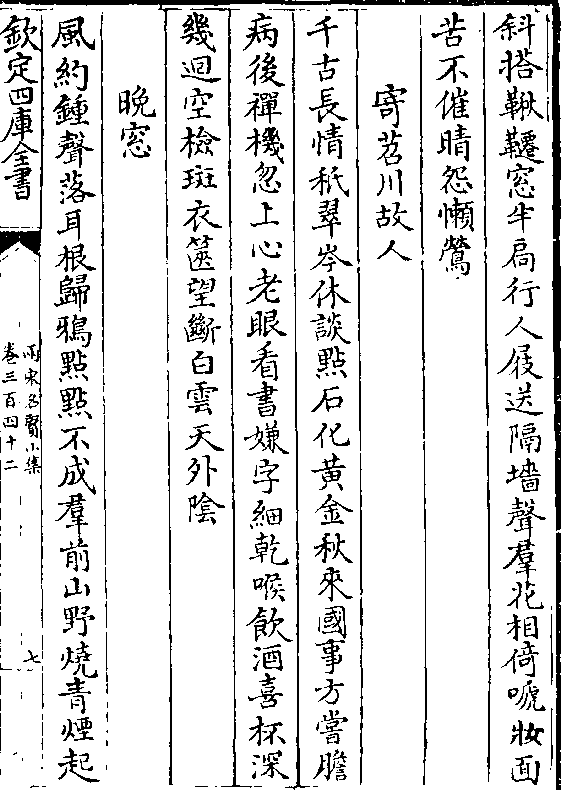 斜搭鞦韆窓半扄行人屐送隔墻聲羣花相倚嗁妝面
苦不催晴怨懶鶯
寄苕川故人
千古長情秖翠岑休談點石化黃金秋來國事方嘗膽
病後禪機忽上心老眼看書嫌字細乾喉飲酒喜杯深
幾迴空檢斑衣篋望斷白雲天外陰
晚窓
風約鍾聲落耳根歸鴉點點不成羣前山野燒青煙起
欽定四庫全書
兩宋名賢小集
卷三百四十二
七